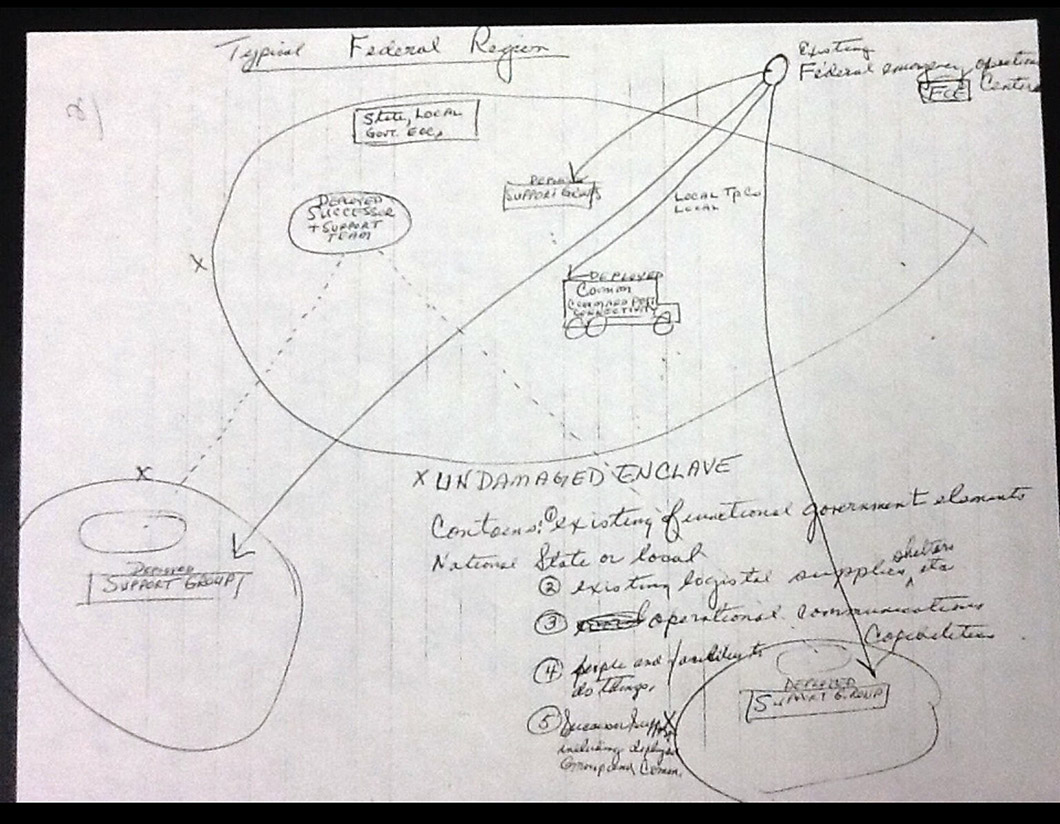 Typical Federal Region
Existing
Federal emergency operations
Centers
State, LOCAL
Govt. EOCs
DEPLOYED
SUCCESSOR
+ SUPPORT
TEAM
DEPLOYED
SUPPORT GROUPS
LOCAL
LOCAL
DEPLOYED
Comm
COMMAND POST
CONNECTIVITY
X
X
X UNDAMAGED ENCLAVE
Contains: ① existing functional government elements
National State or local
shelters
② existing logistal supplies, etc
③ operational communications
Capabilities
④ people and ability to
do things.
⑤ Successor Support
including deployed
Group and Comm.
DEPLOYED
SUPPORT GROUP
X
DEPLOYED
SUPPORT GROUP